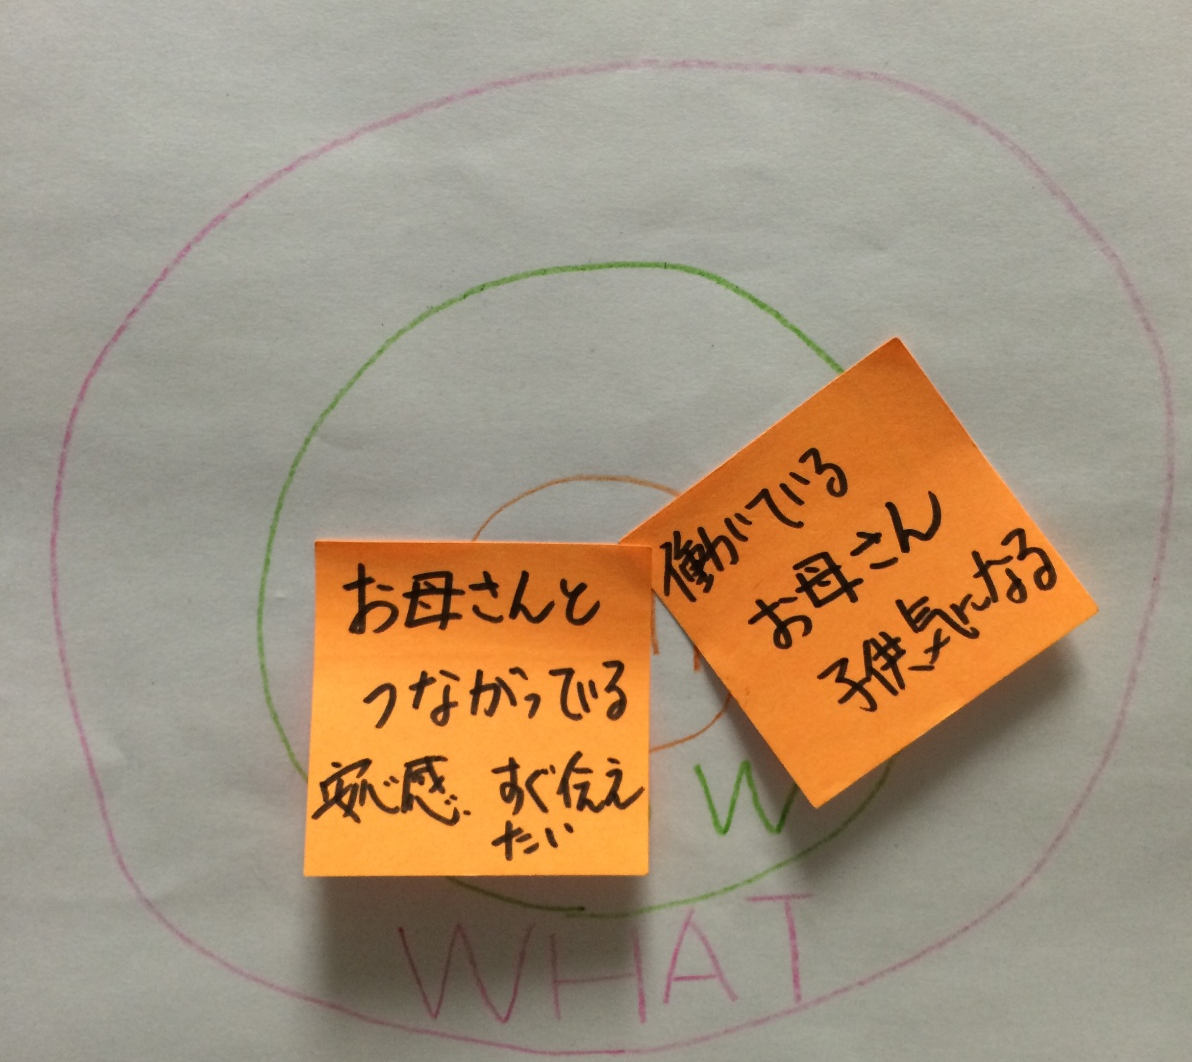 お母さんと
つながっている
安心感 すぐ伝え
たい
働いている
お母さん
子供気になる
W
WHAT